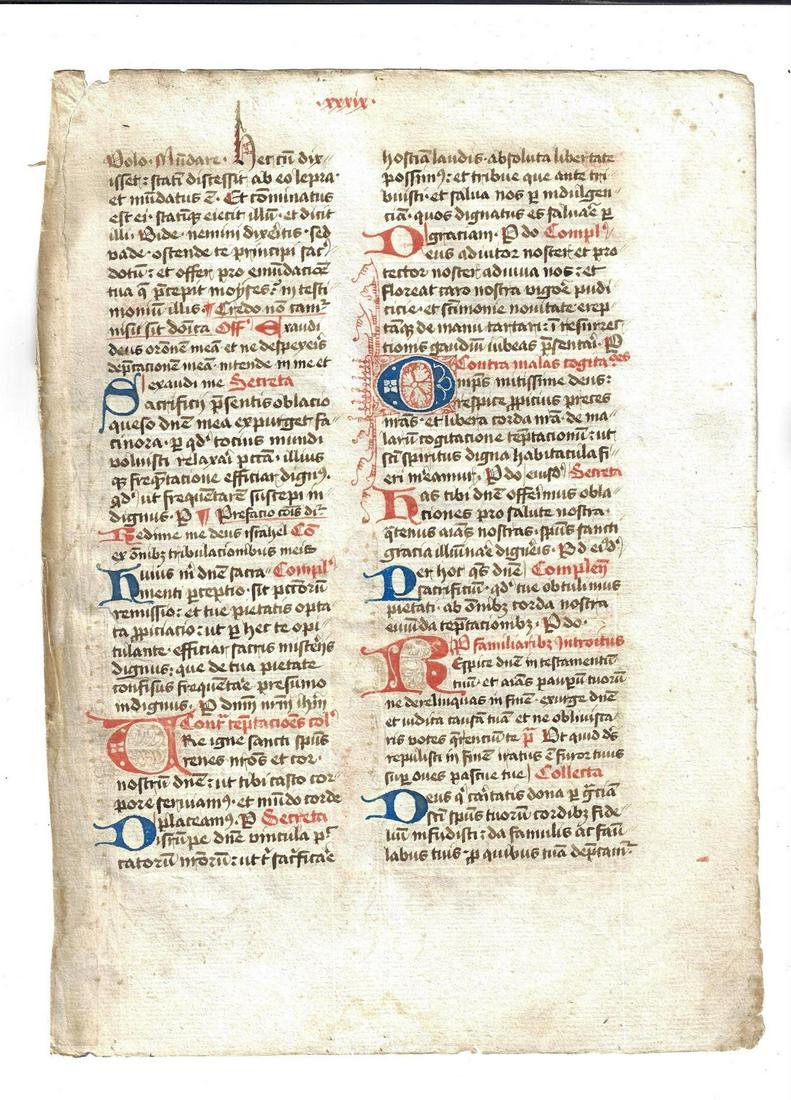 ·xxxix·
Volo·Mūdare· Het cū dix
isset: stati ̄distessit ab eo lepra
et mūdatus ē· Et cōminatus
est ei· statiqȝ eiecit illū· et dicit
illi· Vide· nemini dixeris· sed
vade· ostende te principi sac̄
dotū: et offer pro emūdacōe
tua q̄ p̄cepit moyses· ī testi
moniū illis· ¶ Credo nō cani
nisi sit dōica Off̄ Exaudi
deus orōnem meā et ne despexeis
dep̄cationem meā· intende in me et
exaudi me Secreta
Sacrificii p̄sentis oblacio
queso dn̄e mea expurget fa
cinora· p̱ qd̓ tocius mundi
voluisti relaxai pctā· illius
qȝ freq̄ntatione efficiar dignꝰ·
qd̓ ut frequētare suscepi in
dignus· P̱ ¶ Prefacio cōis dr̄
Redime me deus israhel Cō
ex ōnibȝ tribulacionibus meis
Huius m̄ dn̄e sacra Compl̓
menti p̱ceptio· sit pctorū
remissio: et tue pietatis opta
ta p̱piciacio: ut p̱ hec te opi
tulante· efficiar sacris misterijs
dignus: que de tua pietate
confisus frequētare presumo
indignus· P̱ dn̄m nr̄m ihm̄
Contr̄ tēptacioēs col̓
Ure igne sancti spūs
renes nr̄os et cor·
nostrū dn̄e: ut tibi casto cor
pore seruiamꝰ· et mūdo corde
placeamꝰ· P̱ Secreta
Disrupe dn̄e vincula p̄c
catorū nr̄orū: ut t̓ sac̓ficare
hostiā laudis· absoluta libertate
possimꝰ: et tribue que ante tri
buisti· et salua nos p̱ indulgen
ciā· quos dignatus es saluare p̱
graciam· P̱ do Compl̓
Deus adiutor noster et pro
tector noster adiuua nos: et
floreat caro nostra vigore pudi
citie· et s̄timonie nouitate· erep
tāqȝ de manu tartari: ī resurrec
tionis gaudiū iubeas p̄sentai· P̱
Contra malas cogitacōes
Omps̄ mitissime deus:
respice p̱picius preces
nr̄as· et libera corda nr̄a· de ma
larū cogitacione tēptacionū: ut
sc̄i spiritus digna habitacula fi
eri mereamur· P̱ do eiusd̓ Secreta
Has tibi dn̄e offerimus obla
ciones pro salute nostra·
q̄tenus aīas nostras· spūs sancti
gracia illuīare digneis· P̱ d ei̓d̓
Per hoc qs̄ dn̄e Complen̄
sacrificiū· qd̓ tue obtulimus
pietati· ab ōnibȝ corda nostra
emūda teptacionibȝ· P̱ do·
P̱ familiaribȝ Introitus
Respice dn̄e in testamentū
tuū· et aīas paup̱ū tuorū
ne derelinquas in finē· exurge dn̄e
et iudica causā tuā et ne obliuisca
ris voces q̄rentiū te p̄s Ut quid ds̄
repulisti in finē iratus ē furor tuus
sup̱ oues pascue tue Collecta
Deus q̓ caritatis dona p̱ gr̄ciam
sc̄i spūs tuorū cordibȝ fide
liū infudisti: da famulis ac fāu
labus tuis· p̱ quibus tuā dep̄cam̄